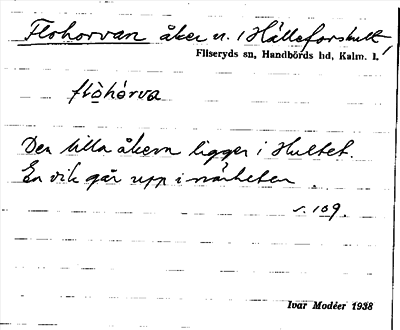 Flohorvan åker u. Hälleforshult,
Fliseryds sn, Handbörds hd, Kalm. l.
flòhórva
Den lilla åkern ligger i Hultet.
En vik går upp i närheten.
s. 109.
Ivar Modéer 1938